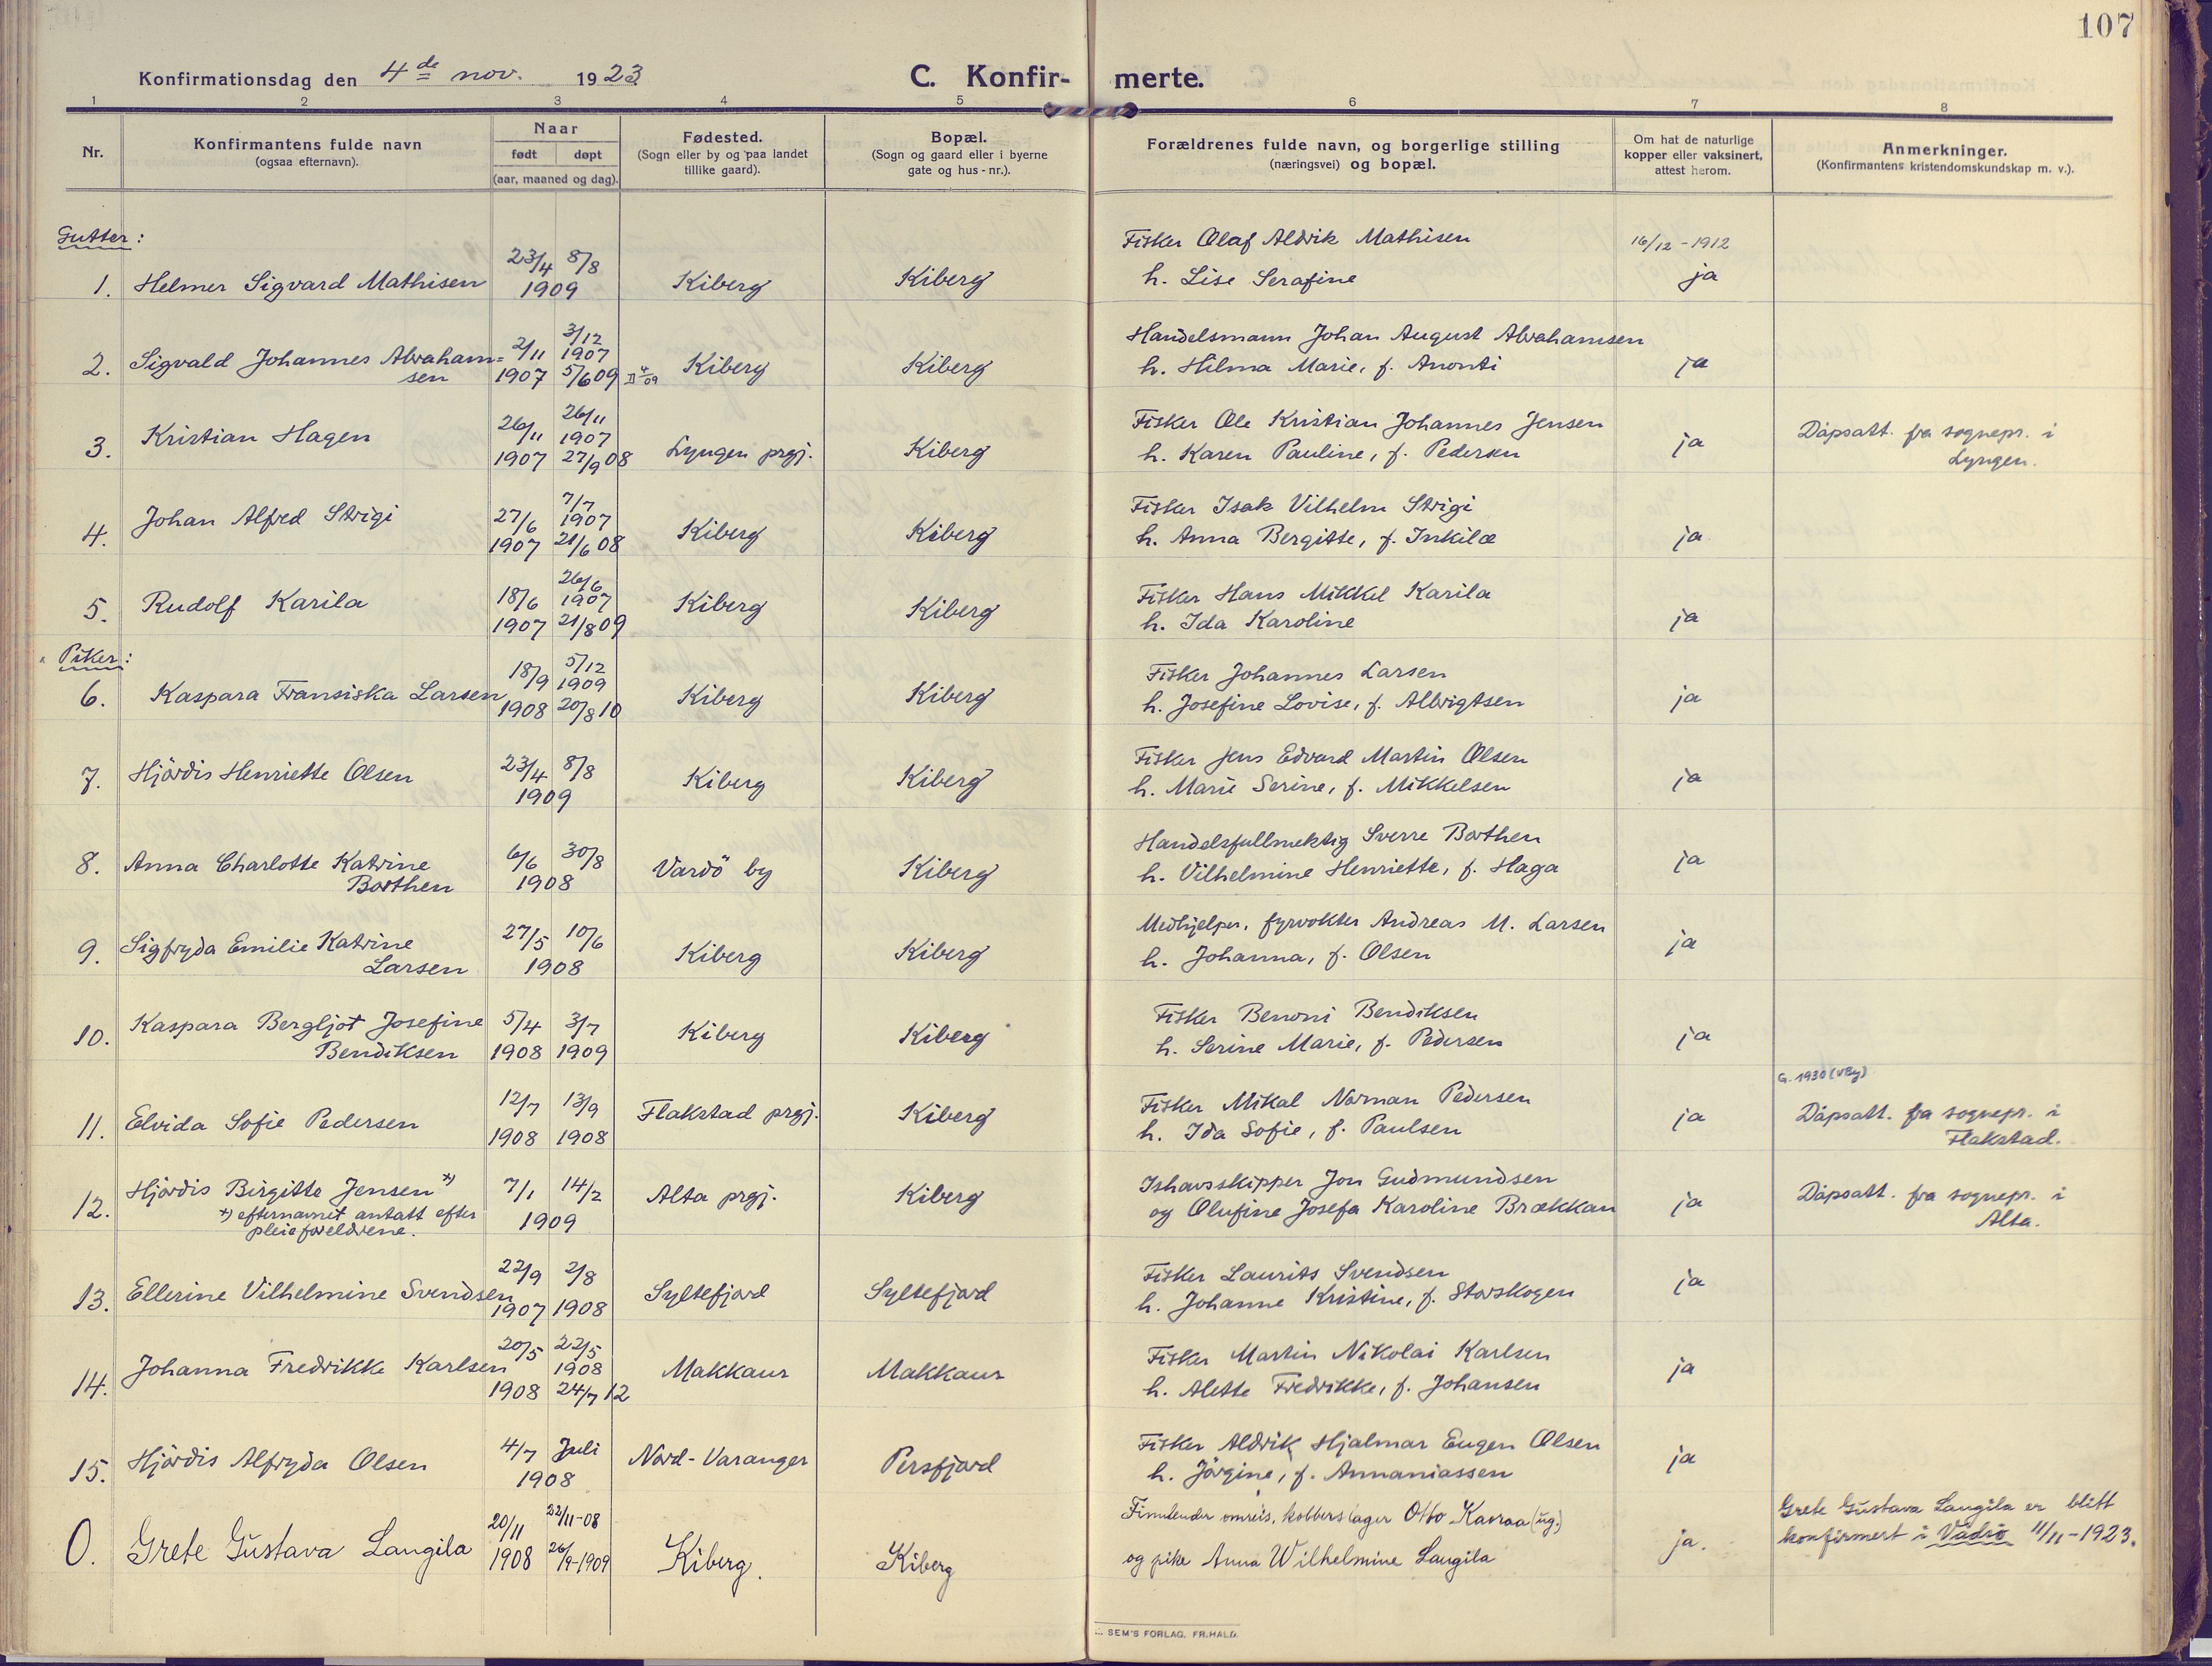 107
Konfirmationsdag den 4de nov. 1923.
C. Konfirmerte.
1 2 3 4 5 6 7 8
Nr.
Konfirmantens fulde navn
(ogsaa efternavn).
Naar
født døpt
(aar, maaned og dag).
Fødested.
(Sogn eller by og paa landet
tillike gaard).
Bopæl.
(Sogn og gaard eller i byerne
gate og hus-nr.).
Forældrenes fulde navn, og borgerlige stilling
(næringsvei) og bopæl.
Om hat de naturlige
kopper eller vaksinert,
attest herom.
Anmerkninger.
(Konfirmantens kristendomskundskap m. v.).
Gutter:
1. Helmer Sigvard Mathisen
23/4 8/8
1909
Kiberg
Kiberg
Fisker Olaf Aldrik Mathisen
h. Lise Serafine
16/12-1912
ja
2. Sigvald Johannes Abraham=
sen
2/11
1907
3/12
1907
5/6 09
Kiberg
Kiberg
Handelsmann Johan August Abrahamsen
h. Hilma Marie, f. Anonti
ja
3. Kristian Hagen
26/11
1907
26/11
1907
27/9 08
Lyngen prgj.
Kiberg
Fisker Ole Kristian Johannes Jensen
h. Karen Pauline, f. Pedersen
ja
Dåpsatt. fra sognepr. i
Lyngen.
4. Johan Alfred Strigi
27/6
1907
7/7
1907
21/6 08
Kiberg
Kiberg
Fisker Isak Vilhelm Strigi
h. Anna Bergitte, f. Inkilæ
ja
5. Rudolf Karila
18/6
1907
26/6
1907
21/8 09
Kiberg
Kiberg
Fisker Hans Mikkel Karila
h. Ida Karoline
ja
Piker:
6. Kaspara Fransiska Larsen
18/9
1908
5/12
1909
20/8 10
Kiberg
Kiberg
Fisker Johannes Larsen
h. Josefine Lovise, f. Albrigtsen
ja
7. Hjördis Henriette Olsen
23/4 8/8
1909
Kiberg
Kiberg
Fisker Jens Edvard Martin Olsen
h. Marie Serine, f. Mikkelsen
ja
8. Anna Charlotte Katrine
Borthen
6/6 30/8
1908
Vardö by
Kiberg
Handelsfullmektig Sverre Borthen
h. Vilhelmine Henriette, f. Haga
ja
9. Sigfryda Emilie Katrine
Larsen
27/5 10/6
1908
Kiberg
Kiberg
Medhjelper, fyrvokter Andreas M. Larsen
h. Johanna, f. Olsen
ja
10. Kaspara Bergljot Josefine
Bendiksen
5/4 3/7
1908 1909
Kiberg
Kiberg
Fisker Benoni Bendiksen
h. Serine Marie, f. Pedersen
ja
11. Elvida Sofie Pedersen
12/7 13/9
1908 1908
Flakstad prgj.
Kiberg
Fisker Mikal Norman Pedersen
h. Ida Sofie, f. Paulsen
ja
G. 1930 (VBy)
Dåpsatt. fra sognepr. i
Flakstad.
12. Hjördis Birgitte Jensen *)
*) efternavnet antatt efter
pleieforeldrene.
7/1 14/2
1909
Alta prgj.
Kiberg
Ishavsskipper Jon Gudmundsen
og Olufine Josefa Karoline Brækkan
ja
Dåpsatt. fra sognepr. i
Alta.
13. Ellerine Vilhelmine Svendsen
22/9 2/8
1907 1908
Syltefjord
Syltefjord
Fisker Laurits Svendsen
h. Johanne Kristine, f. Storskogen
ja
14. Johanna Fredrikke Karlsen
20/5
1908
22/5
1908
24/7 12
Makkaur
Makkaur
Fisker Martin Nikolai Karlsen
h. Alette Fredrikke, f. Johansen
ja
15. Hjördis Alfryda Olsen
4/7 Juli
1908
Nord-Varanger
Persfjord
Fisker Aldrik Hjalmar Eugen Olsen
h. Jörgine, f. Annaniassen
ja
0. Grete Gustava Laugila
20/11
1908
22/11-08
26/9-1909
Kiberg.
Kiberg
Finnlender omreis. kobberslager Otto Kavraa (ug.)
og pike Anna Wilhelmine Laugila
ja.
Grete Gustava Laugila er blitt
konfirmert i Vadsö 11/11-1923.
SEM'S FORLAG, FR.HALD.